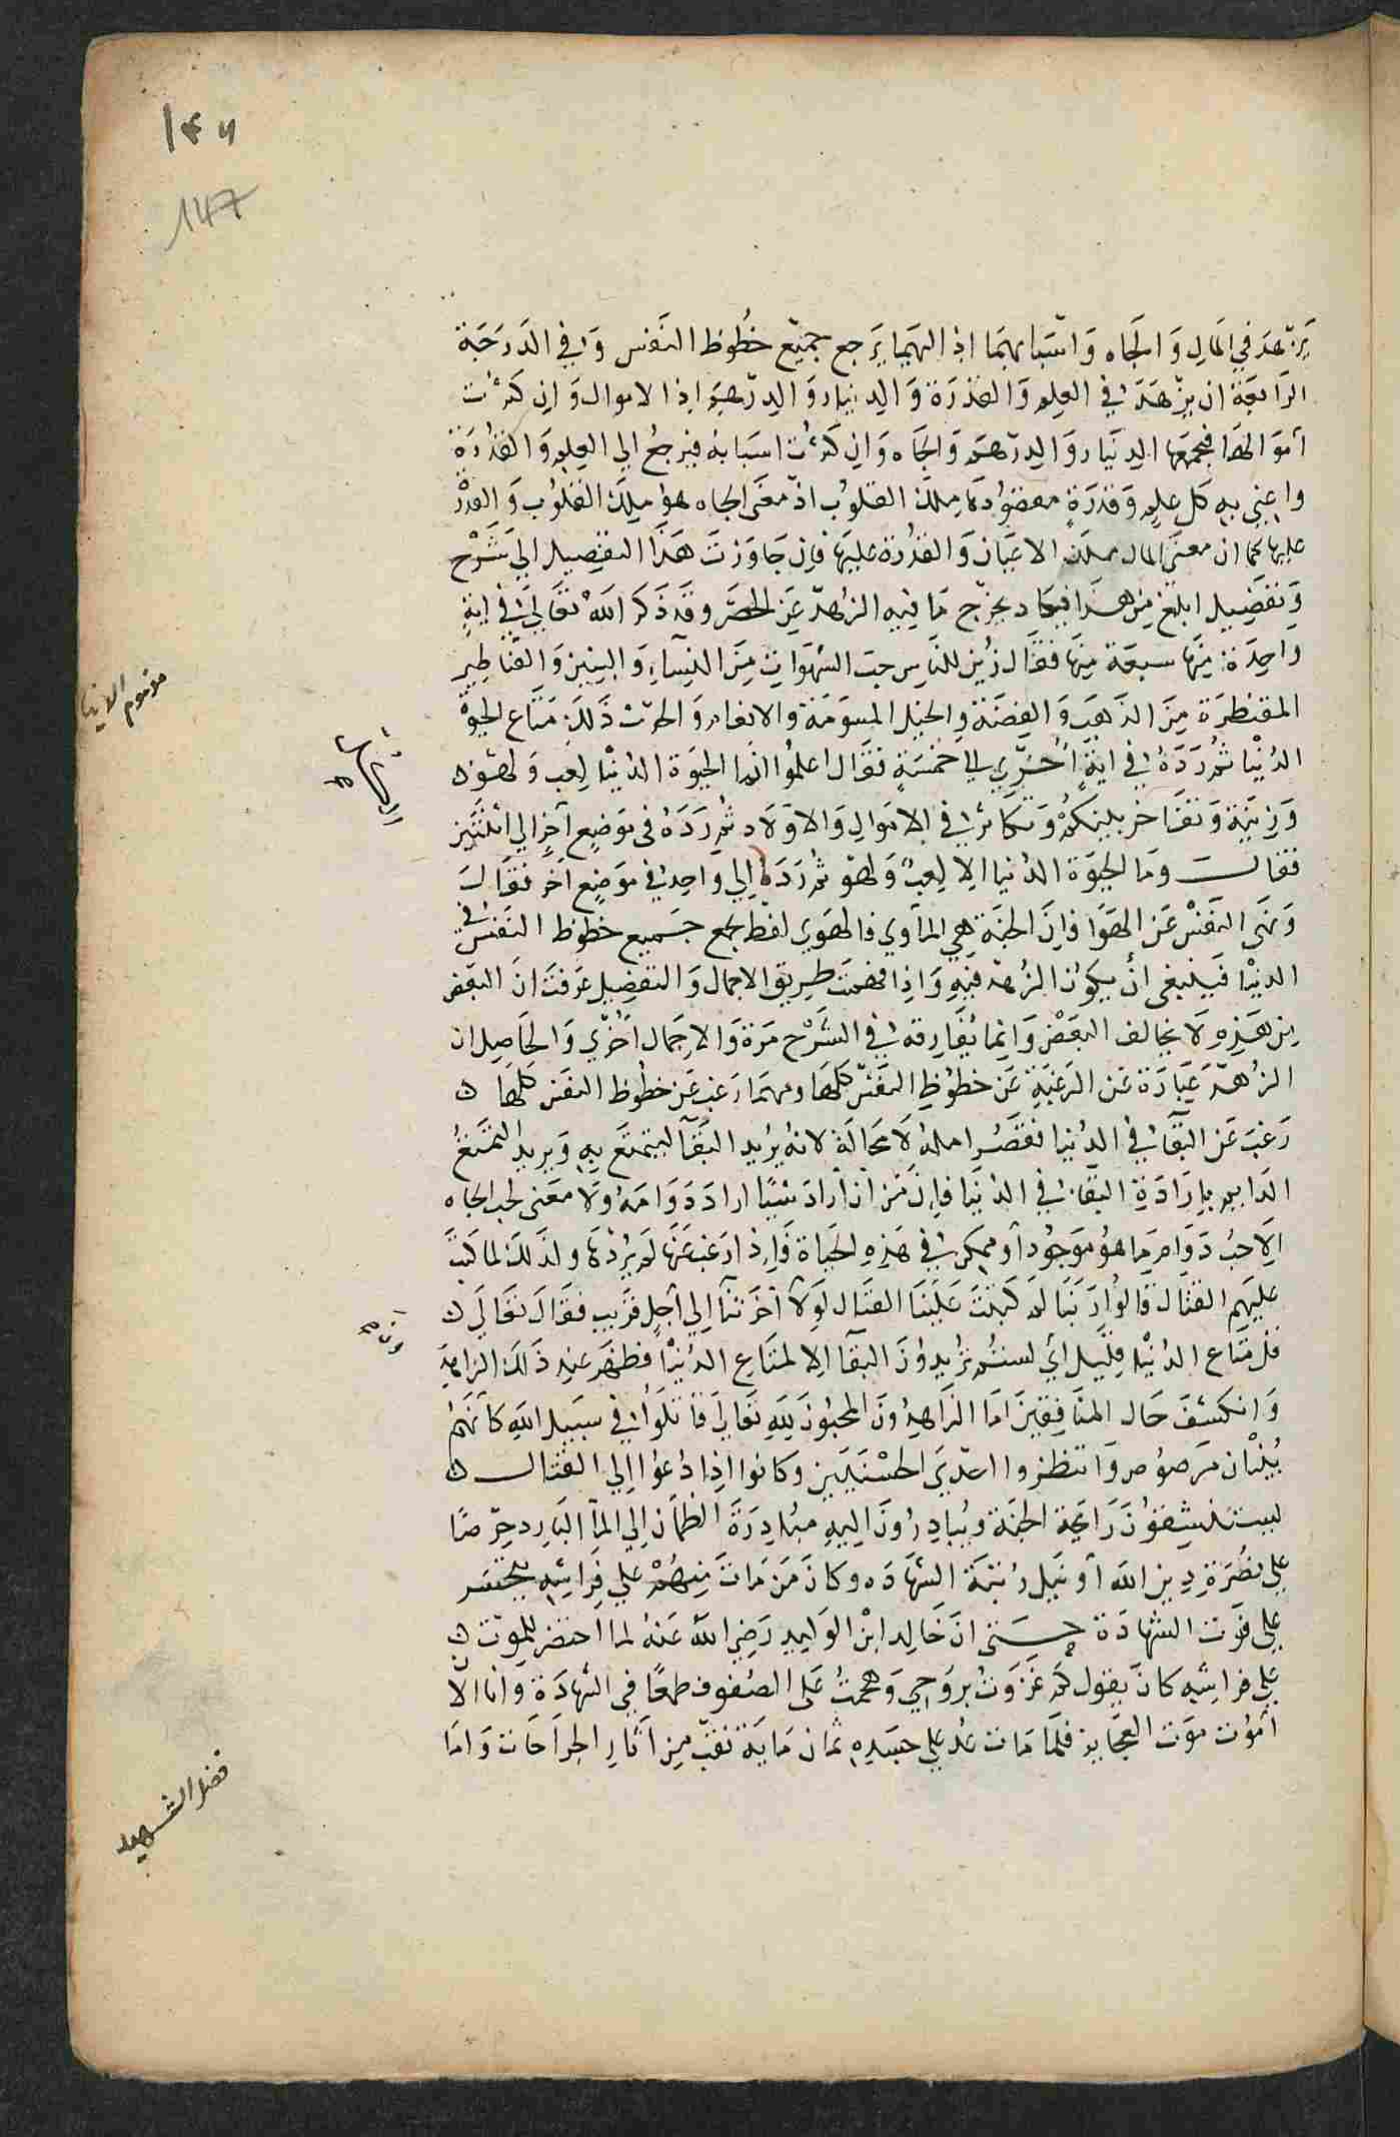 ١٤٦
147
يزهد في المال والجاه واسبابهما اذ اليهما يرجع جميع حظوظ النفس وفي الدرجة
الرابعة ان يزهد في العلم والقدرة والدينار والدرهم اذ الاموال وان كثرت
اموالها فيجمعها الدينار والدرهم والجاه وان كثرت اسبابه فيرجع الي العلم والقدرة
واعني به كل علم وقدرة مقصودها ملك القلوب اذ معنى الجاه هو ملك القلوب والقدرة
عليها كما ان معنى المال ملك الاعيان والقدرة عليها فان جاوزت هذا التفصيل الي شرح
وتفصيل ابلغ من هذا فيكاد يخرج ما فيه الزهد عن الحصر وقد ذكر الله تعالي في اية
واحدة منها سبعة منها فقال زين للناس حب الشهوات من النساء والبنين والقناطير
المقنطرة من الذهب والفضة والخيل المسومة والانعام والحرث ذلك متاع الحيوة
الدنيا ثم رده في اية اخري الي خمسة فقال اعلموا انما الحيوة الدنيا لعب ولهو
وزينة وتفاخر بينكم وتكاثر في الاموال والاولاد ثم رده في موضع آخر الي اثنين
فقال وما الحيوة الدنيا الا لعب ولهو ثم رده الي واحد في موضع آخر فقال
ونهى النفس عن الهوا فان الجنة هي المأوي فالهوي لفظ يجمع جميع حظوظ النفس في
الدنيا فينبغي أن يكون الزهد فيه واذا فهمت طريق الاجمال والتفصيل عرفت ان البعض
من هذه لا يخالف البعض وانما يفارقه في الشرح مرة والاجمال اخري والحاصل ان
الزهد عبارة عن الرغبة عن حظوظ النفس كلها ومهما رغب عن حظوظ النفس كلها
رغب عن البقا في الدنيا فقصر امله لا محالة لانه يريد البقا ليتمتع به ويريد التمتع
الدايم بارادة البقا في الدنيا فان من أن أراد شيئا اراد دوامه ولا معنى لحب الجاه
الا حب دوام ما هو موجود أو ممكن في هذه الحياة فاذا رغب عنها لم يردها ولذلك لما كتب
عليهم القتال قالوا ربنا لم كتبت علينا القتال لولا أخرتنا الي أجل قريب فقال تعالى
قل متاع الدنيا قليل أي لستم تريدون البقا الا لمتاع الدنيا فظهر عند ذلك الزاهد
وانكشف حال المنافقين اما الزاهدون المحبون لله تعالي فقاتلوا في سبيل الله كأنهم
بنيان مرصوص وانتظروا احدي الحسنيين وكانوا اذا دعوا الي القتال
ليستنشقون رايحة الجنة ويبادرون اليه مبادرة الظمآن الي الما البارد حرصا
علي نصرة دين الله أو نيل رتبة الشهاده وكان من مات منهم علي فراشه يتحسر
علي فوت الشهادة حتى ان خالد ابن الوليد رضي الله عنه لما احتضر للموت
علي فراشه كان يقول كم غررت بروحي وهجمت على الصفوف طمعا في الشهادة وانا الآن
أموت موت العجايز فلما مات عد علي جسده ثمان مايه ثقب من آثار الجراحات واما
مذموم الدنيا
فضل الشهيد